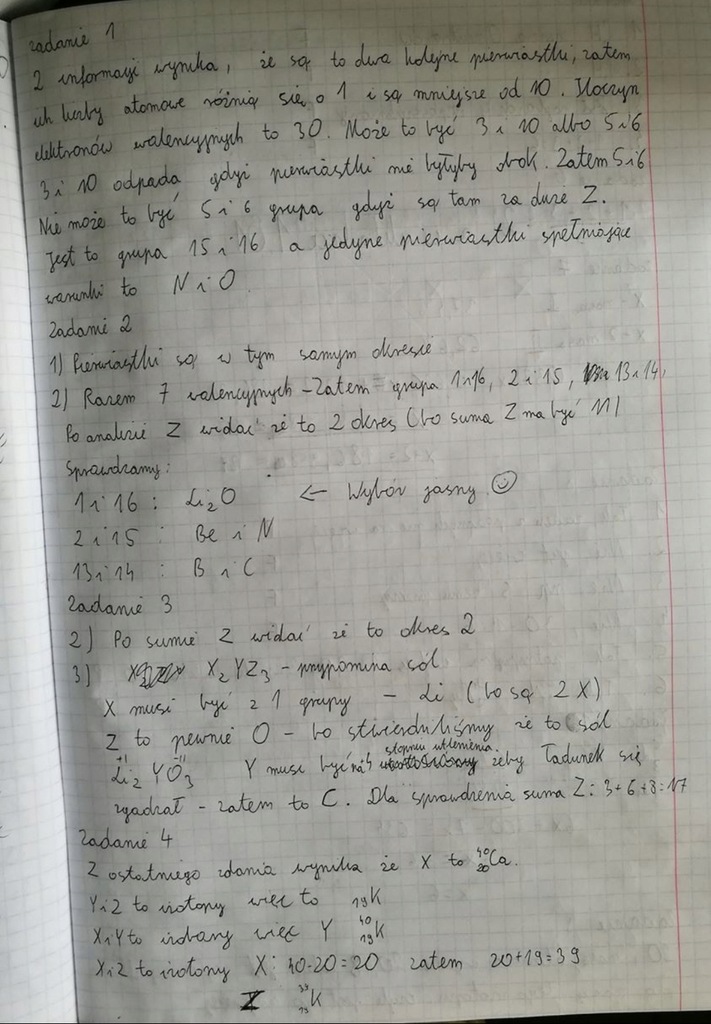 zadanie 1
Z informacji wynika, że są to dwa kolejne pierwiastki, zatem
ich liczby atomowe różnią się o 1 i są mniejsze od 10. Iloczyn
elektronów walencyjnych to 30. Może to być 3 i 10 albo 5 i 6
3 i 10 odpada gdyż pierwiastki nie byłyby obok. Zatem 5 i 6
Nie może to być 5 i 6 grupa gdyż są tam za duże Z.
Jest to grupa 15 i 16 a jedyne pierwiastki spełniające
warunki to N i O.
Zadanie 2
1) Pierwiastki są w tym samym okresie
2) Razem 7 walencyjnych - Zatem grupa 1 i 16, 2 i 15, 13 i 14,
Po analizie Z widać że to 2 okres (bo suma Z ma być 11)
Sprawdzamy:
1 i 16 : Li₂O ← Wybór jasny ☺
2 i 15 : Be i N
13 i 14 : B i C
Zadanie 3
2) Po sumie Z widać że to okres 2
3) X₂YZ₃ - przypomina sól
X musi być z 1 grupy - Li (bo są 2 X)
Z to pewnie O - bo stwierdziliśmy że to sól
Li₂ YO₃ Y musi być na stopniu utlenienia żeby ładunek się
zgadzał - zatem to C. Dla sprawdzenia suma Z: 3+6+8=17
Zadanie 4
Z ostatniego zdania wynika że X to ⁴⁰₂₀Ca.
Y i Z to izotopy więc to ₁₉K
X i Y to izobary więc Y ⁴⁰₁₉K
X i Z to izotony X: 40-20=20 zatem 20+19=39
Z ³⁹₁₉K